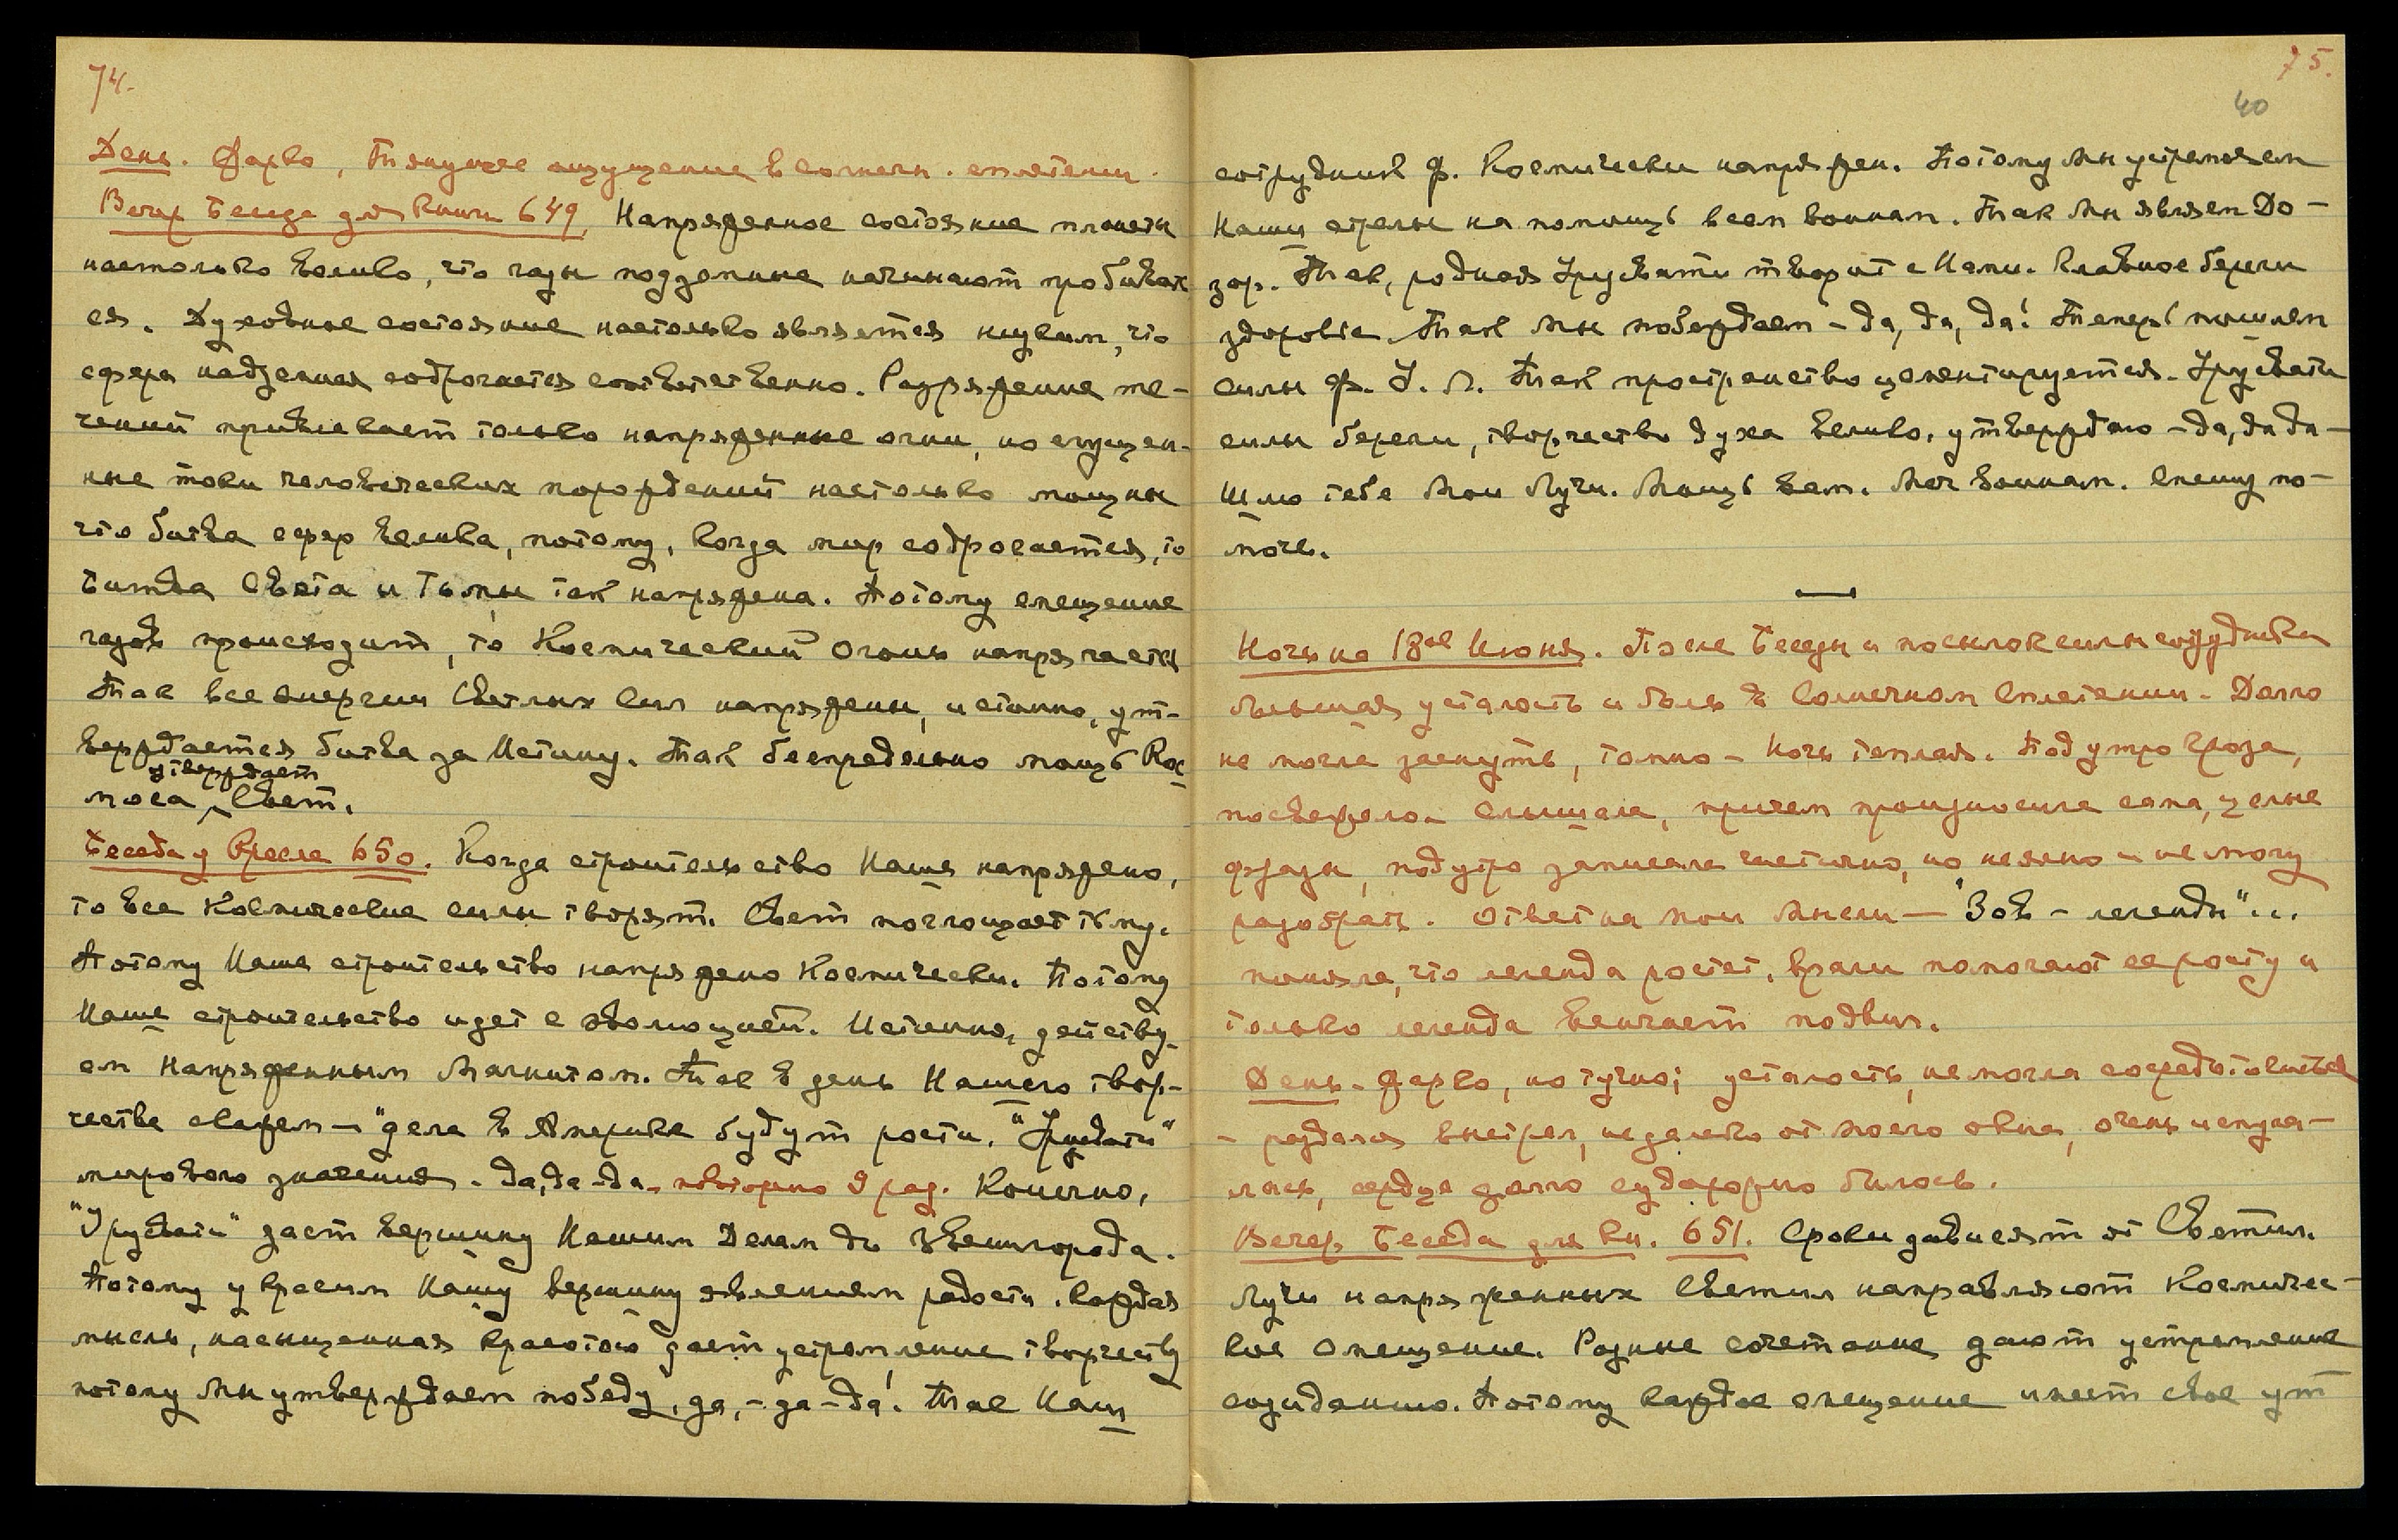 74.
День. Жарко, тянущее ощущение в солнечн. сплетении.
Вечер Беседа для Книги 649. Напряженное состояние планеты
настолько велико, что газы подземные начинают пробивать
ся. Духовное состояние настолько является низким, что
сфера надземная содрогается соответственно. Разряжение те-
чений привлекает только напряженные огни, но сгущен-
ные токи человеческих порождений настолько мощны
что битва сфер велика, потому, когда мир содрогается, то
битва Света и Тьмы так напряжена. Потому смещение
газов происходит, то Космический Огонь напрягается
Так все энергии Светлых Сил напряжены, истинно, ут-
верждается битва за Истину. Так беспредельно мощь Кос
утверждает
моса Свет.
Беседа у Кресла 650. Когда строительство Наше напряжено,
то все Космические силы творят. Свет поглощает тьму.
Потому Наше строительство напряжено Космически. Потому
Наше строительство идет с эволюцией. Истинно, действу-
ем Напряженным Магнитом. Так в день Нашего твор-
чества скажем — "дела в Америке будут расти. "Урусвати"
мирового значения. Да, да - да. повторно 3 раз. Конечно,
"Урусвати" дает вершину Нашим Делам до Звенигорода.
Потому украсим Нашу вершину явлением радости. Каждая
мысль, насыщенная красотою дает устремление творчеству
потому Мы утверждаем победу, да, - да - да! Так Наш
75.
40
сотрудник Ф. Космически напряжен. Потому Мы устремляем
Наши стрелы на помощь всем воинам. Так Мы являем До-
зор. Так, родная Урусвати творит с Нами. Главное береги
здоровье. Так Мы побеждаем - да, да, да! Теперь пошлем
силы Ф. У. Л. Так пространство цементируется. Урусвати
силы береги, творчество духа велико, утверждаю - да, да да -
Шлю тебе Мои Лучи. Мощь вам. Меч воинам. Спешу по-
мочь.
Ночь на 18ое Июня. После Беседы и посылок силы сотрудника
большая усталость и боль в Солнечном Сплетении. Долго
не могла заснуть, томно - Ночь теплая. Под утро гроза,
посвежело. Слышала, причем произносила сама, целые
фразы, под утро записала частично, но неясно и не могу
разобрать. Ответ на мои мысли — "Зов - легенды"...
поняла, что легенда растет, враги помогают ее росту и
только легенда венчает подвиг.
День - Жарко, но тучно; усталость, не могла сосредоточиться
- раздался выстрел, недалеко от моего окна, очень испуга-
лась, сердце долго судорожно билось.
Вечер Беседа для Кн. 651. Сроки зависят от Светил.
Лучи напряженных Светил направляют Космичес-
кое Смещение. Разные сочетания дают устремление
созиданию. Потому каждое смещение имеет свое ут